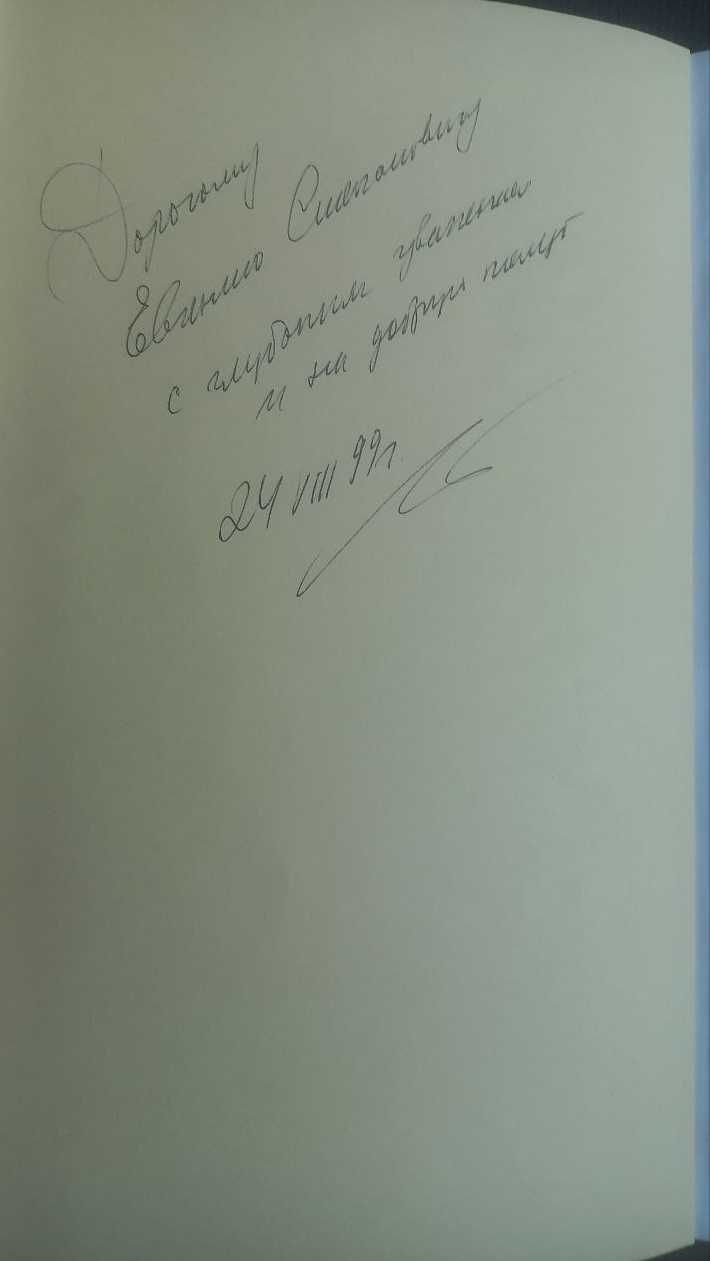 Дорогому
Евгению Степановичу
с глубоким уважением
и на добрую память
24 VIII 99г.